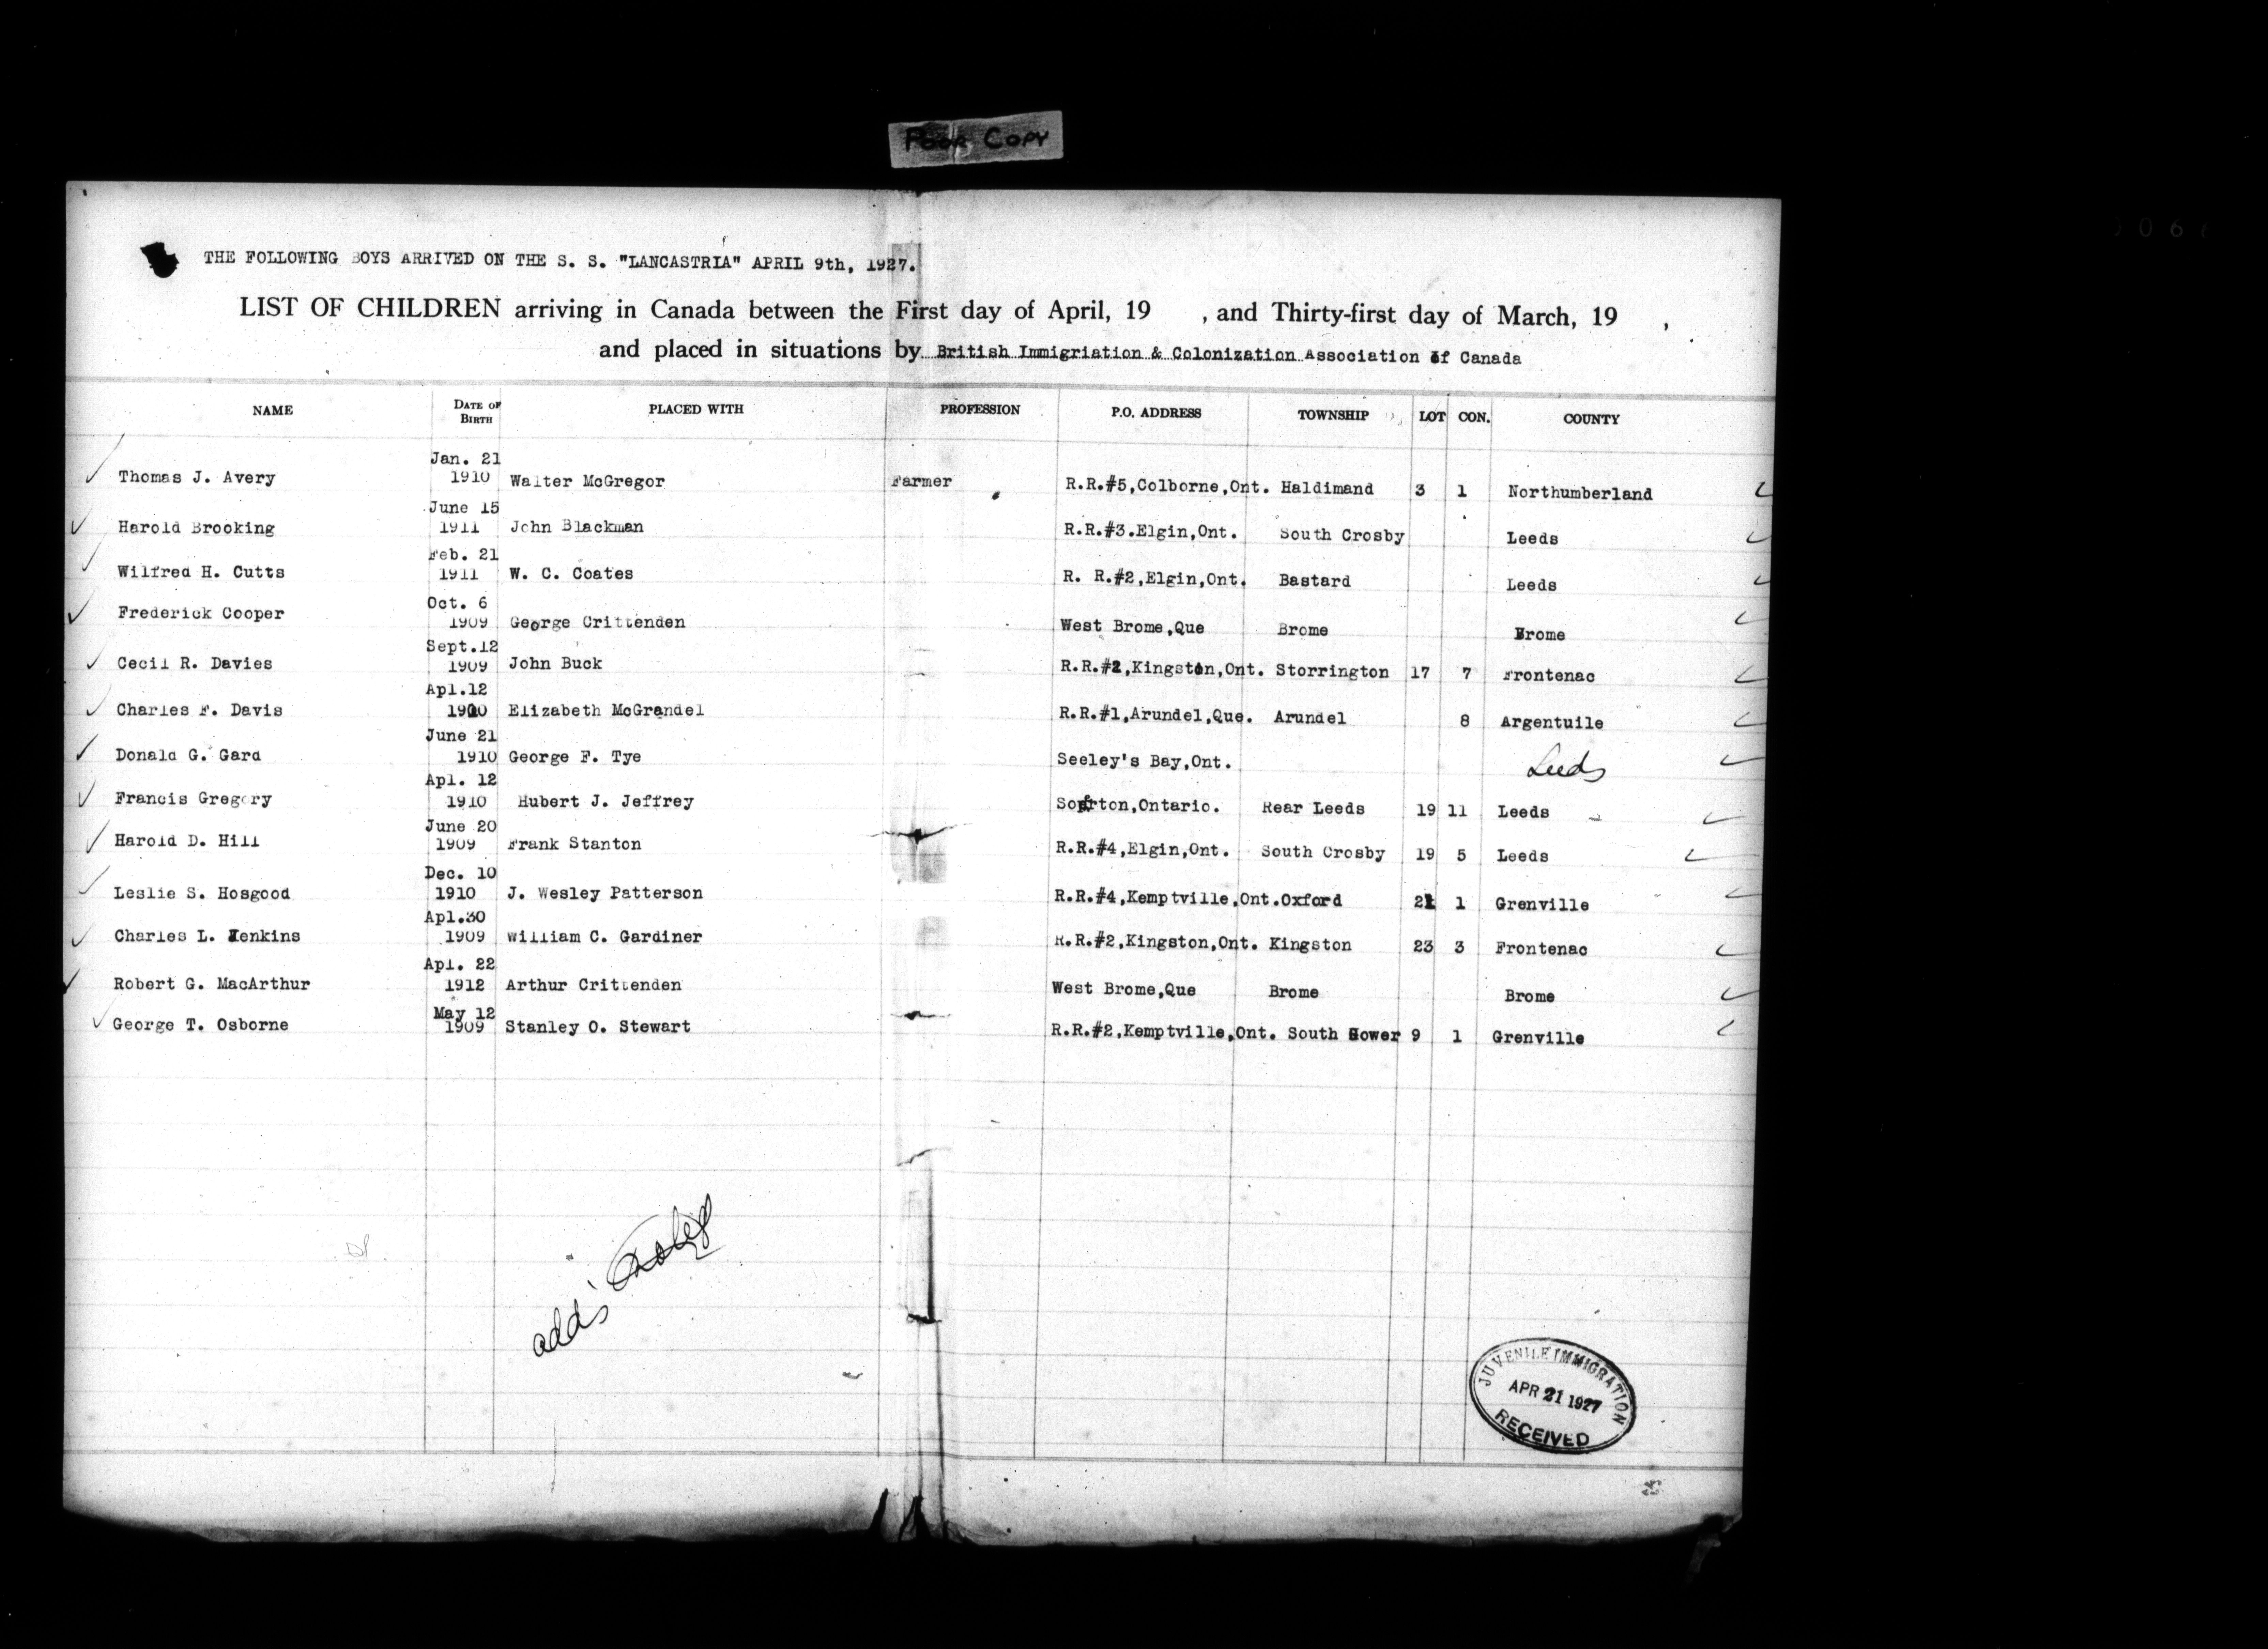 Poor Copy
THE FOLLOWING BOYS ARRIVED ON THE S. S. "LANCASTRIA" APRIL 9th, 1927.
LIST OF CHILDREN arriving in Canada between the First day of April, 19 , and Thirty-first day of March, 19 ,
and placed in situations by British Immigriation & Colonization Association of Canada
NAME DATE OF BIRTH PLACED WITH PROFESSION P.O. ADDRESS TOWNSHIP LOT CON. COUNTY
Thomas J. Avery Jan. 21 1910 Walter McGregor Farmer R.R.#5,Colborne,Ont. Haldimand 3 1 Northumberland
Harold Brooking June 15 1911 John Blackman R.R.#3.Elgin,Ont. South Crosby Leeds
Wilfred H. Cutts Feb. 21 1911 W. C. Coates R. R.#2,Elgin,Ont. Bastard Leeds
Frederick Cooper Oct. 6 1909 George Crittenden West Brome,Que Brome Brome
Cecil R. Davies Sept.12 1909 John Buck R.R.#2,Kingston,Ont. Storrington 17 7 Frontenac
Charles F. Davis Apl.12 1910 Elizabeth McGrandel R.R.#1,Arundel,Que. Arundel 8 Argentuile
Donald G. Gard June 21 1910 George F. Tye Seeley's Bay,Ont. Leeds
Francis Gregory Apl. 12 1910 Hubert J. Jeffrey Ontario. Rear Leeds 19 11 Leeds
Harold D. Hill June 20 1909 Frank Stanton R.R.#4,Elgin,Ont. South Crosby 19 5 Leeds
Leslie S. Hosgood Dec. 10 1910 J. Wesley Patterson R.R.#4,Kemptville,Ont. Oxford 1 Grenville
Charles L. Jenkins Apl.30 1909 William C. Gardiner R.R.#2,Kingston,Ont. Kingston 23 3 Frontenac
Robert G. MacArthur Apl. 22 1912 Arthur Crittenden West Brome,Que Brome Brome
George T. Osborne May 12 1909 Stanley O. Stewart R.R.#2,Kemptville,Ont. South Gower 9 1 Grenville
JUVENILE IMMIGRATION
APR 21 1927
RECEIVED